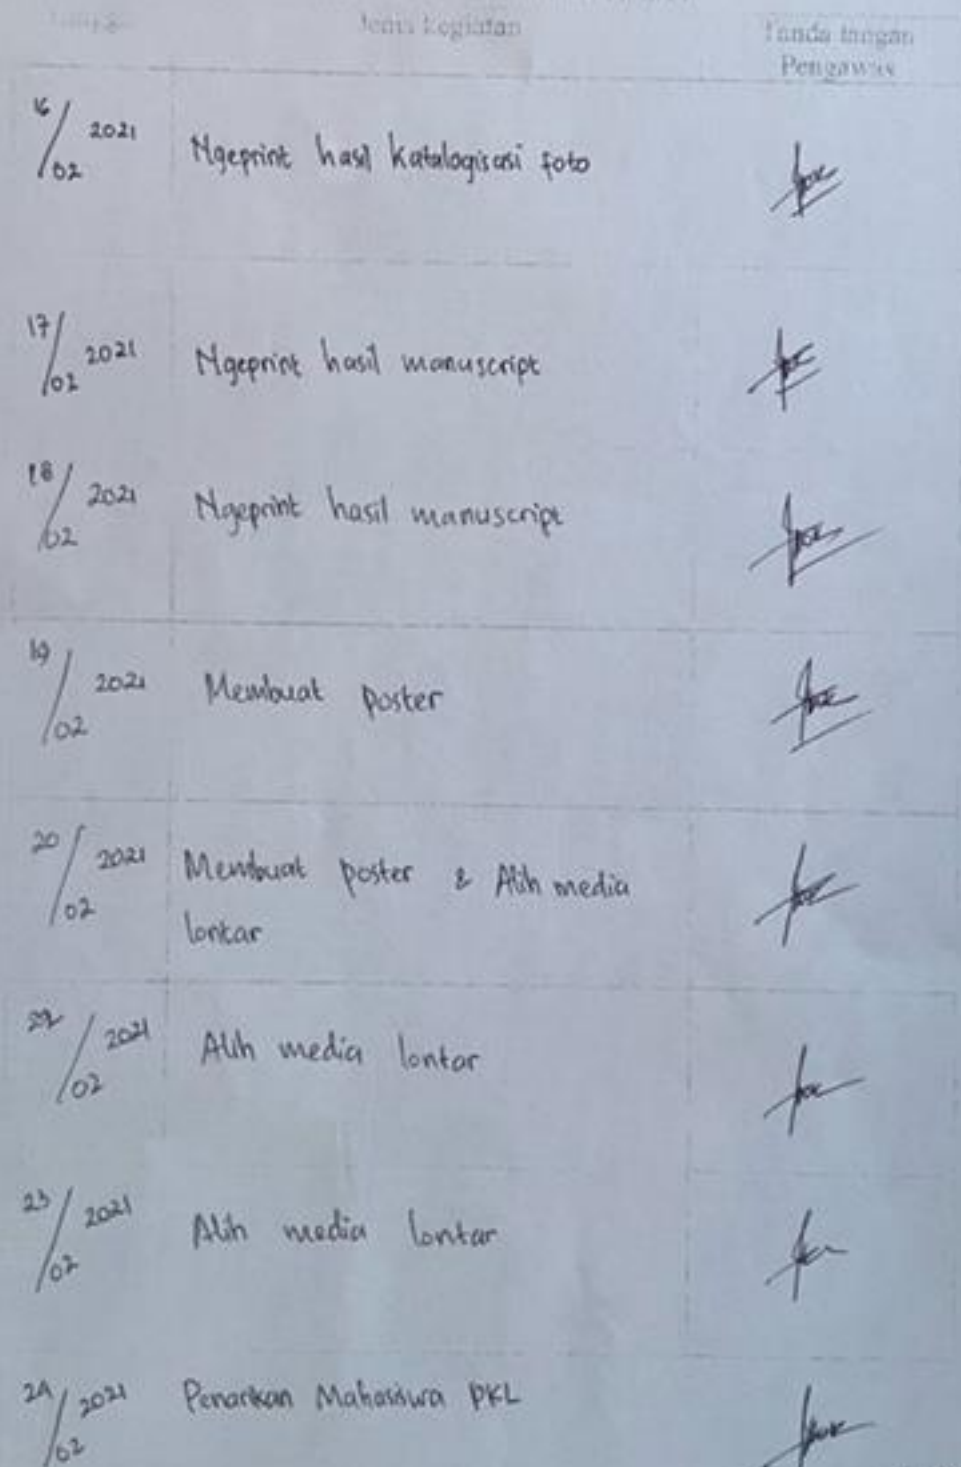 Jenis kegiatan
Tanda tangan
Pengawas
16/02 2021 Ngeprint hasil katalogisasi foto
17/02 2021 Ngeprint hasil manuscript
18/02 2021 Ngeprint hasil manuscript
19/02 2021 Membuat poster
20/02 2021 Membuat poster & Alih media
lontar
22/02 2021 Alih media lontar
23/02 2021 Alih media lontar
24/02 2021 Penarikan Mahasiswa PKL